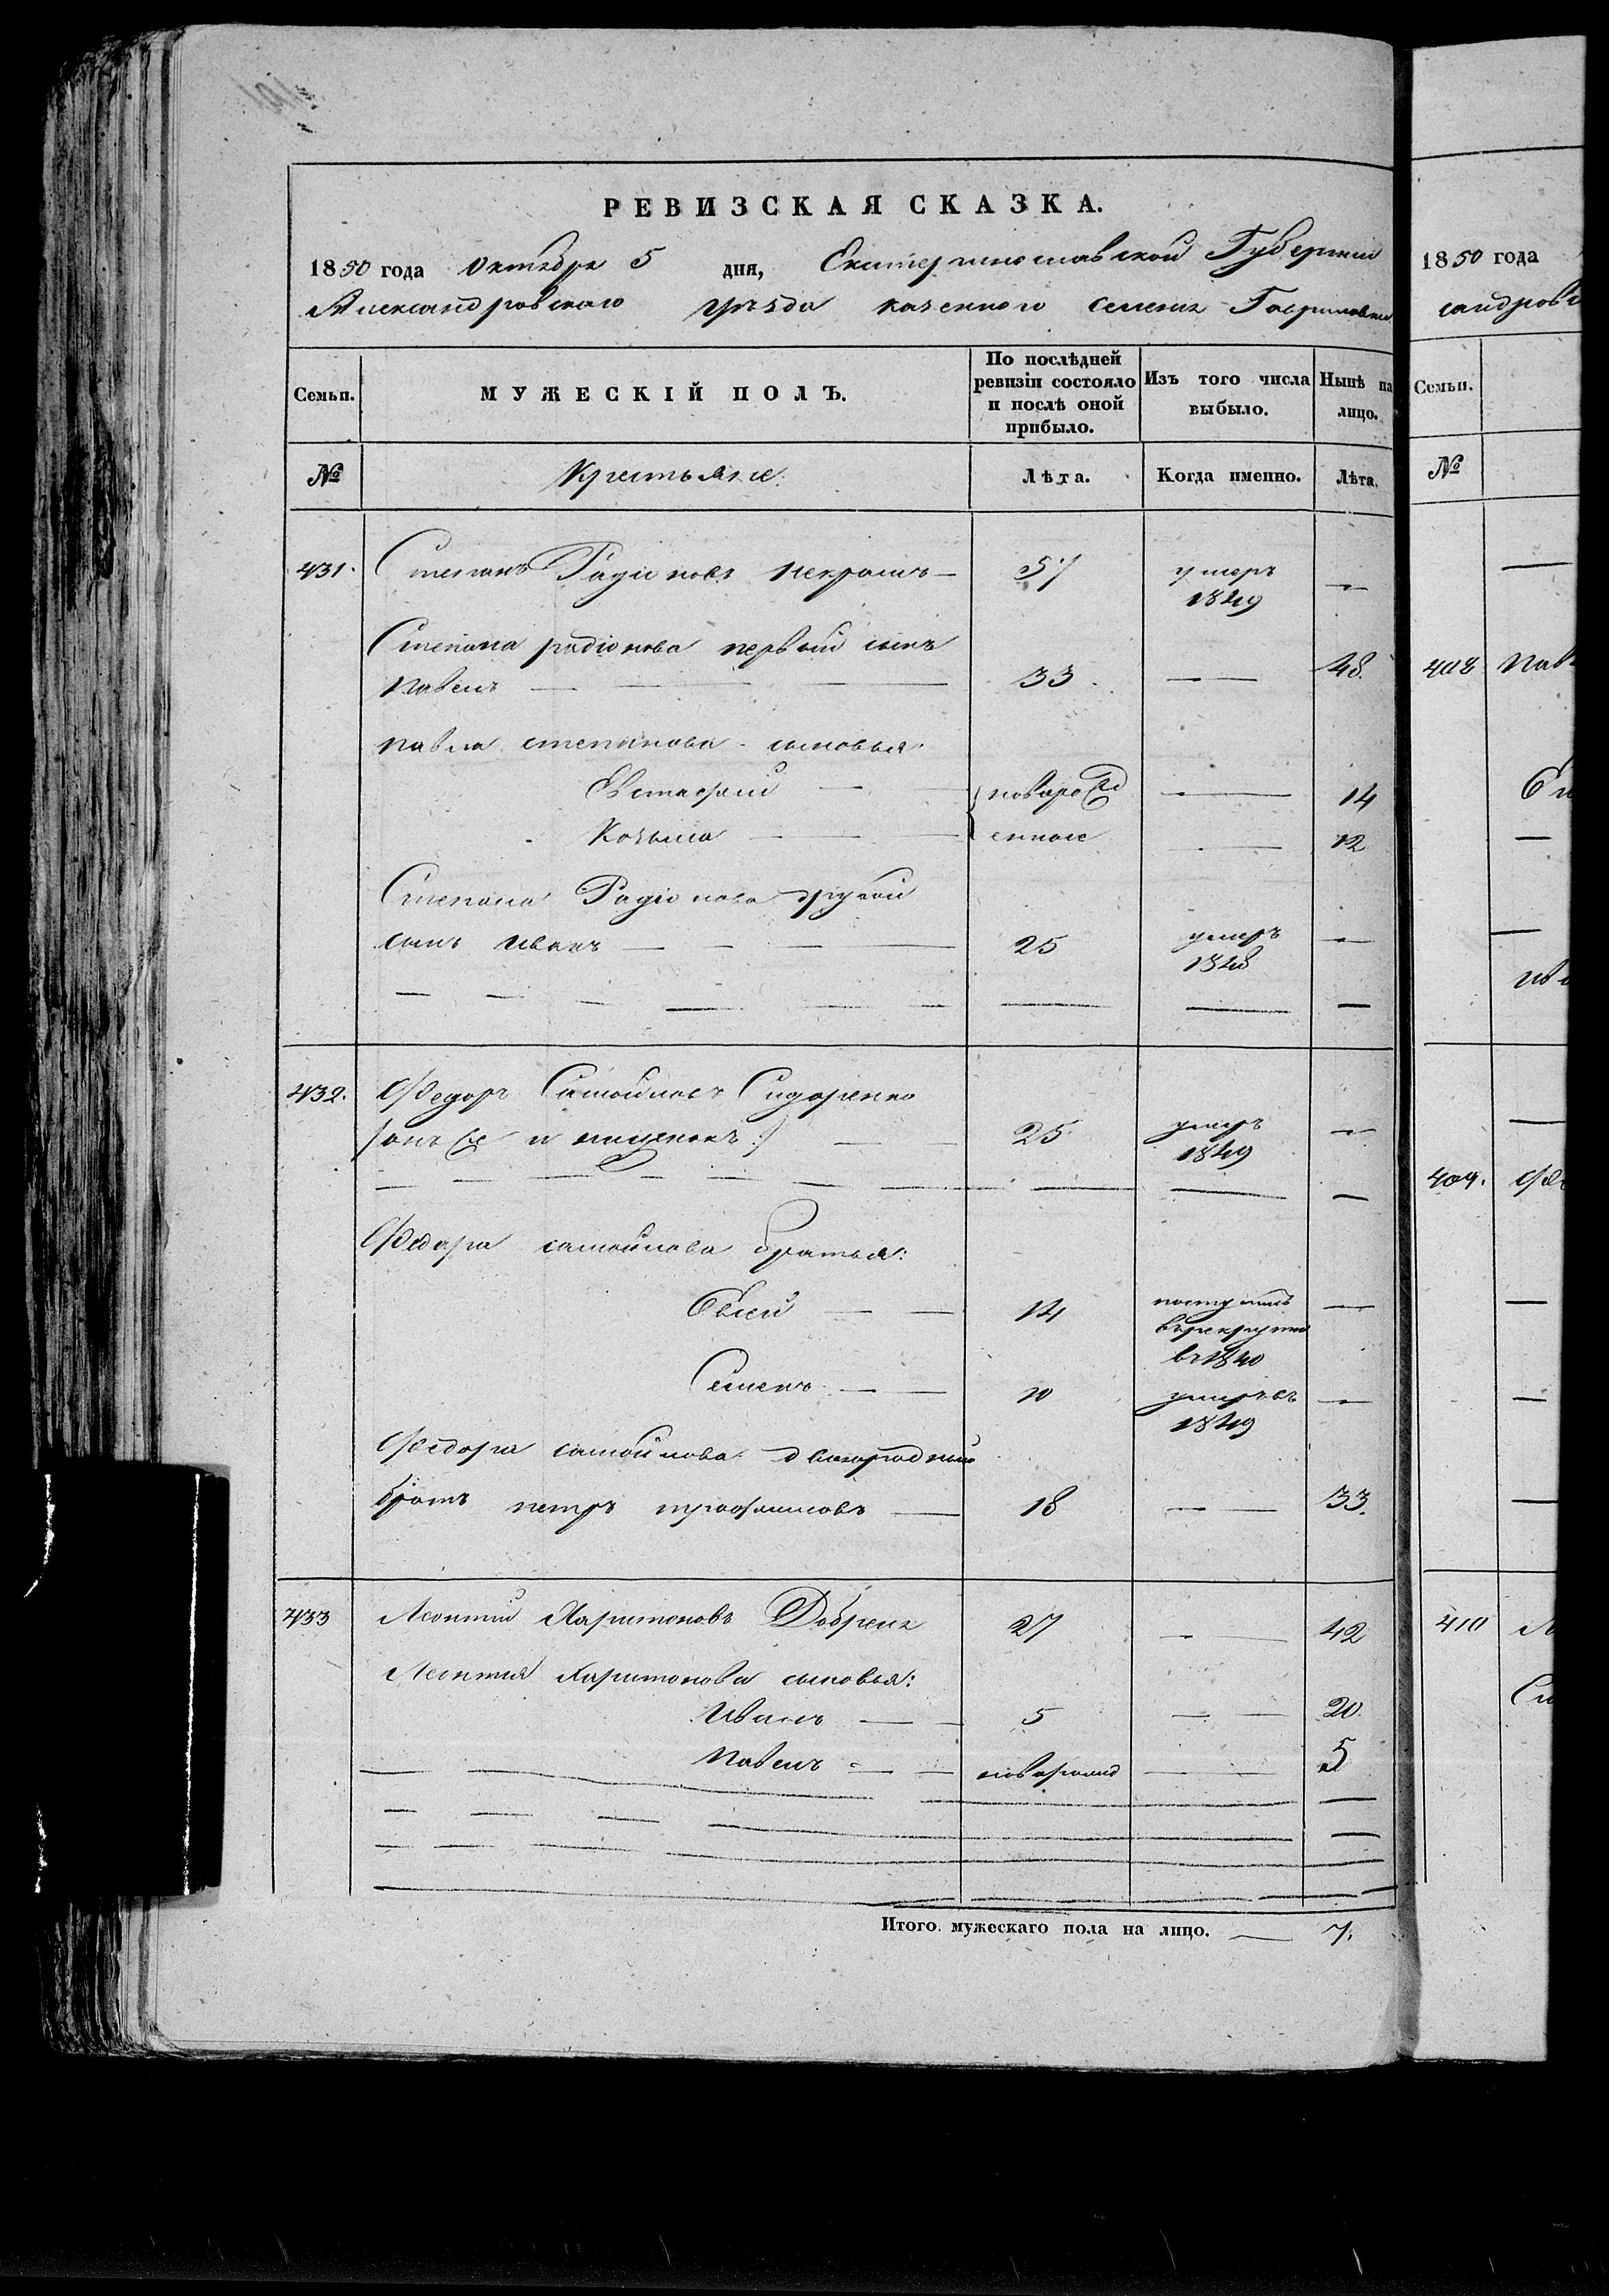 РЕВИЗСКАЯ СКАЗКА.
1850 года Октября 5 дня, Екатеринославской Губернии
Александровского уѣзда казенного селенія Гавриловки
Семьи. МУЖЕСКІЙ ПОЛЪ. По послѣдней ревизіи состояло и послѣ оной прибыло. Изъ того числа выбыло. Нынѣ на лицо.
№ Крестьяне: Лѣта. Когда именно. Лѣта.
431. Степанъ Радіоновъ Некрашъ 57 умеръ 1849 —
Степана радіонова первый сынъ
павелъ — 33 — 48.
павла степанова сыновья
Евстафій — новорожд — 14
Козьма — енные — 12
Степана Радіонова другой
сынъ иванъ — 25 умеръ 1848 —
432. Федоръ Самойловъ Сидоренко
/онъ же и :/ — 25 умеръ 1849 —
Федора самойлова братья:
Евсей — 14 поступилъ в рекруты в 1840 —
Семенъ — 10 умеръ въ 1849 —
Федора самойлова двоюродный
братъ петръ трофимовъ — 18 — 33.
433 Леонтій Харитоновъ 27 — 42
Леонтія Харитонова сыновья:
Иванъ — 5 — 20.
Павелъ — новорожд — 5
Итого мужескаго пола на лицо. — 7.
1850 года
сандровс
Семьи.
№
408 Пав
409. Фе
410